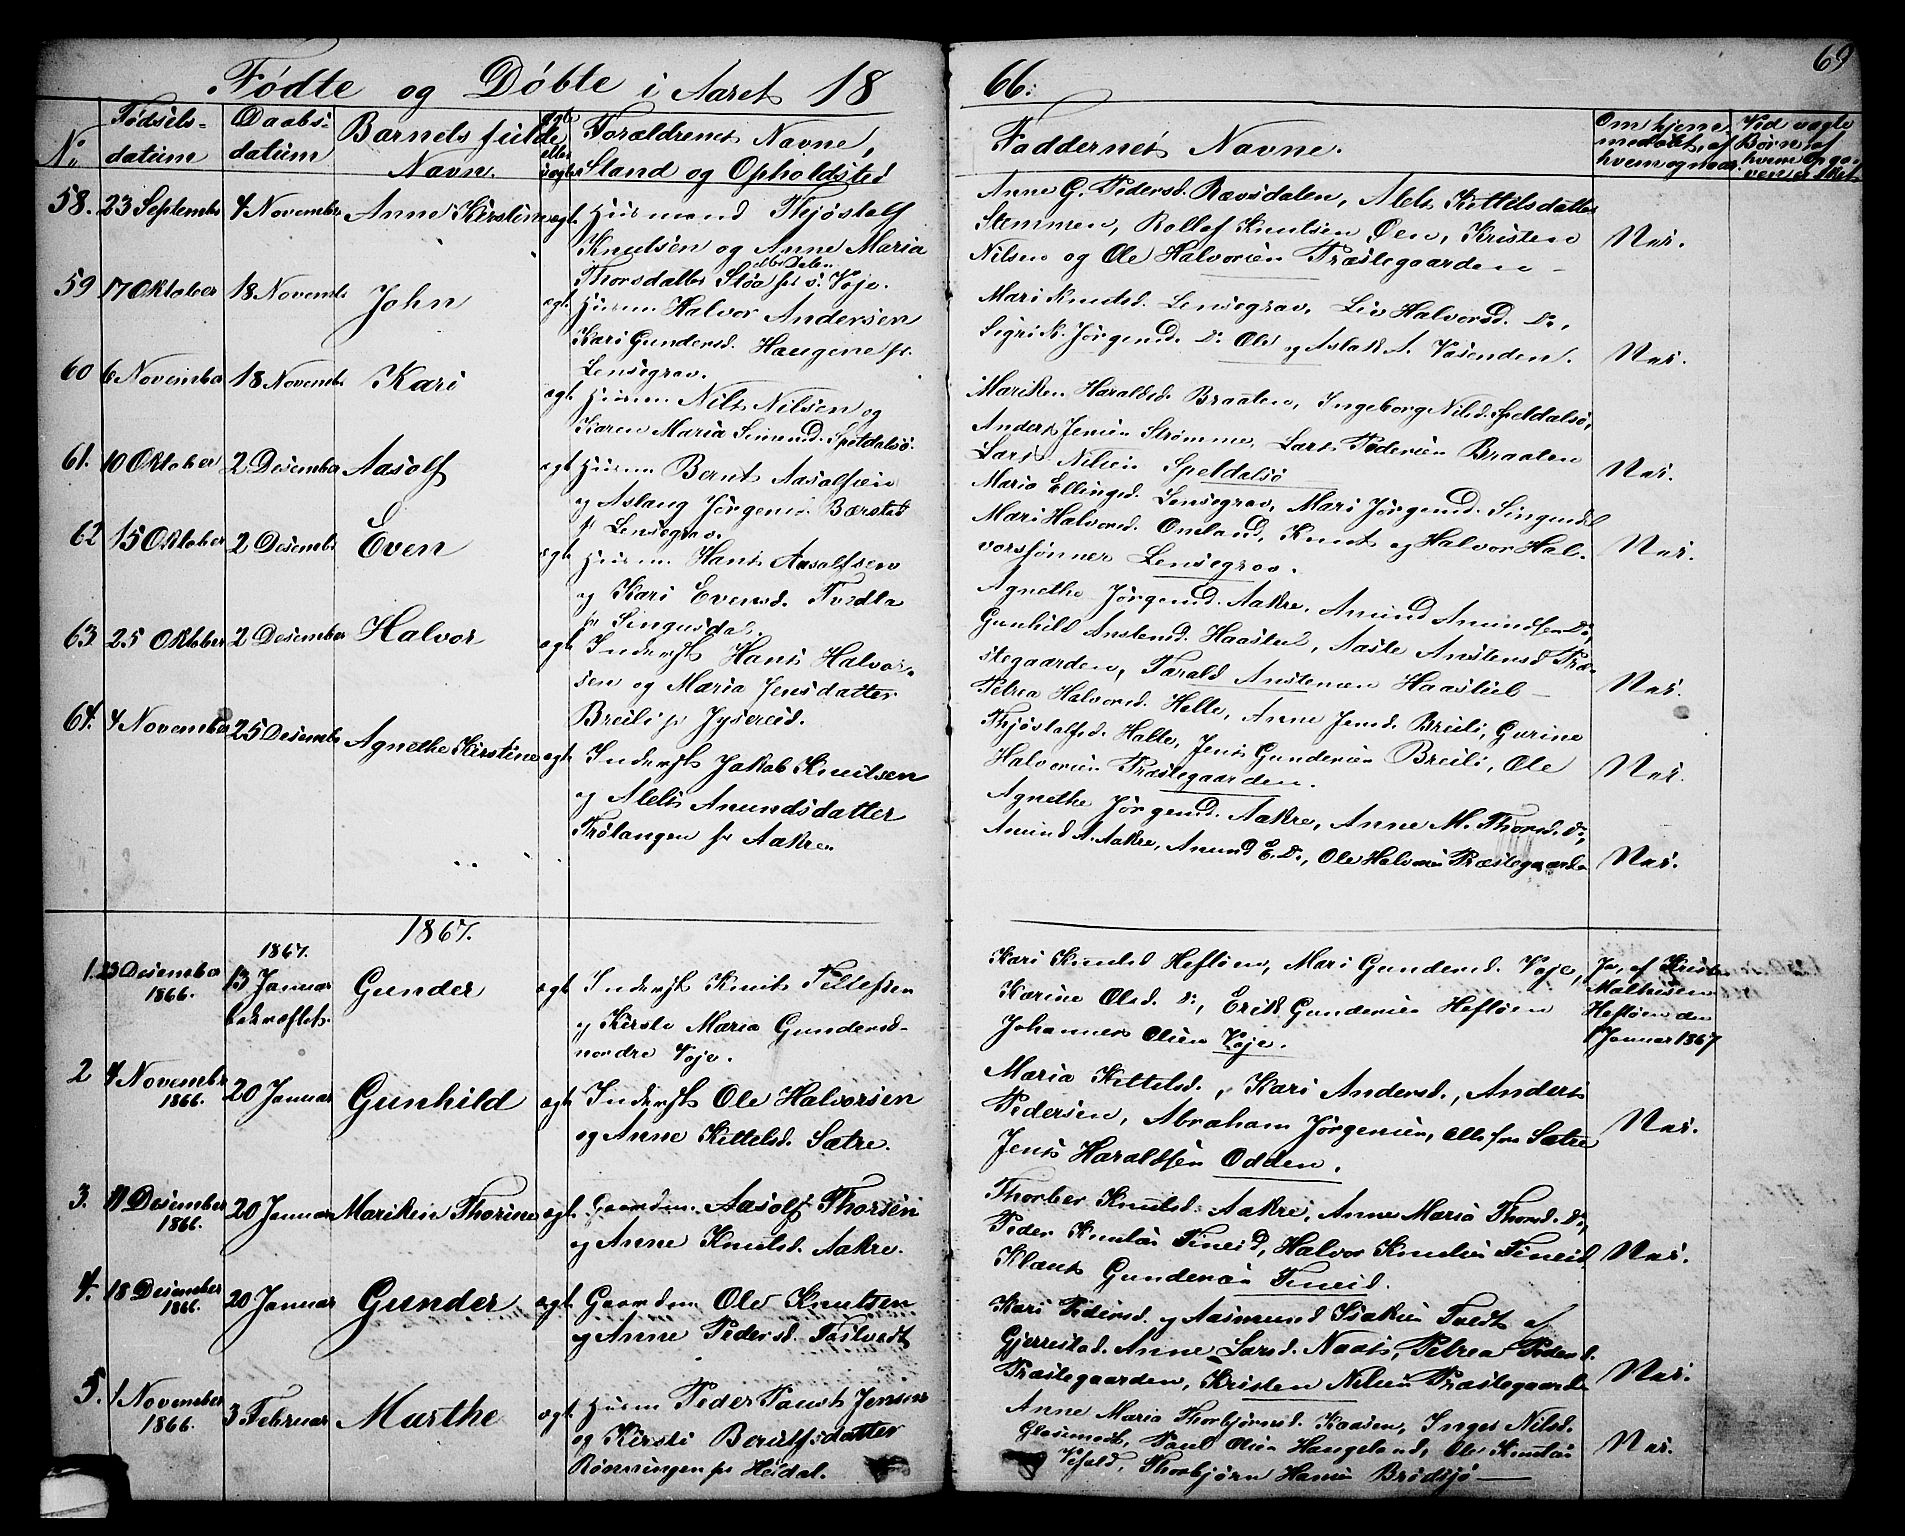 Fødte og Døbte i Aaret 18
66.
69
No
Fødsels-
datum
Daabs-
datum
Barnets fulde
Navn.
ægte
eller
uægte
Forældrenes Navne,
Stand og Opholdsted
Faddernes Navne.
Om hjeme-
medøbt, af
hvem og naar.
Ved uægte
Børn, af
hvem Opga-
ven er sket
58. 23 September 4 November Anne Kirstine ægt. Husmand Thjøstolf
Knutsen og Anne Maria
Thorsdatter Støa fr s. Voje.
Anne G. Pedersd. Ravsdalen, Alet Kittelsdatter
Stemmen, Rollef Knutsen Øen, Kristen
Nilsen og Ole Halvorsen Præstegaarden
Nei.
59 17 Oktober 18 Novemb. John ægt. Husm. Halvor Andersen
Kari Gundersd. Haugene fr.
Lensegrav.
Mari Knutsd. Lensegrav, Liv Halvorsd. Do,
Sigri K. Jørgensd. Do Ole og Aslak A. Vasenden.
Nei.
60 6 November 18 Novemb. Kari ægt. Husm. Nils Nilsen og
Karen Maria Simensd. Speldalsø.
Mariken Haraldsd. Braaten, Ingeborg Nilsd. Speldalsø,
Anders Jensen Strømme, Lars Pedersen Braaten
Lars Nilsen Speldalsø
Nei.
61. 10 Oktober 2 Desember Aasolf ægt. Husm. Bernt Aasolfsen
og Aslaug Jørgensd. Bærstad
fr Lensegrav.
Maria Ellingsd. Lensegrav, Mari Jørgensd. Singusdal
Mari Halvorsd. Omland, Knut og Halvor Hal-
vorsønner Lensegrav.
Nei.
62 15 Oktober 2 Desemb. Even ægt. Husm. Hans Aasolfsen
og Kari Evensd. Tvedta
fr Singusdal.
Agnethe Jørgensd. Aakre, Amund Amundsen Do,
Gunhild Anstensd. Haastul, Aaste Anstensd. Præ-
stegaarden, Tarald Anstensen Haastul
Nei.
63 25 Oktober 2 Desember Halvor ægt. Inderst Hans Halvor-
sen og Maria Jensdatter
Breili fr Jysereid.
Petrea Halvorsd. Helle, Anne Jensd. Breili, Gurine
Thjøstolfsd. Halte, Jens Gundersen Breili, Ole
Halvorsen Præstegaarden.
Nei.
64. 4 November 25 Desemb. Agnethe Kirstine ægt. Inderst Jakob Knutsen
og Alet Amundsdatter
Trølangen fr Aakre.
Agnethe Jørgensd. Aakre, Anne M. Thorsd. Do,
Amund A. Aakre, Amund E. Do, Ole Halvorsen Præstegaarden
Nei.
1867.
1. 23 Desember
1866.
1867.
13 Januar
bekræftet.
Gunder ægt. Inderst Knut Tellefsen
og Kirste Maria Gundersd.
nordre Voje.
Kari Knutsd. Hefløen, Mari Gundersd. Voje,
Karine Olsd. Do, Erik Gundersen Hefløen
Johannes Olsen Voje.
Ja, af Kristen
Mathisen
Hefløen den
1 Januar 1867
2 4 Novemb.
1866.
20 Januar Gunhild ægt. Inderst Ole Halvorsen
og Anne Kittelsd. Sætre.
Maria Kittelsd., Kari Andersd., Anders
Pedersen, Abraham Jørgensen, alle fra Sætre
Jens Haraldsen Odden.
Nei.
3. 11 Desember
1866.
20 Januar Mariken Thorine ægt. Gaardm. Aasolf Thorsen
og Anne Knutsd. Aakre.
Thorber Knutsd. Aakre, Anne Maria Thorsd. Do,
Peder Knutsen Fineid, Halvor Knutsen Fineid
Klaus Gundersen Fineid.
Nei.
4. 18 Desember
1866.
20 Januar Gunder ægt. Gaardm. Ole Knutsen
og Anne Pedersd. Tostvedt
Kari Pedersd. og Aasmund Isaksen Tvedt af
Gjerrestad, Anne Larsd. Naas, Petrea Pedersd.
Præstegaarden, Kristen Nilsen Præstegaarden
Nei.
5. 1 November
1866.
3 Februar Marthe ægt. Husm Peder Paust Jensen
og Kirsti Berulfsdatter
Rønningen fr Heidal.
Anne Maria Thorbjørnsd. Kaasen, Inger Nilsd.
Glosemodt, Paul Olsen Haugeland, Ole Knutsen
Vefald, Thorbjørn Hansen Brødsjø
Nei.